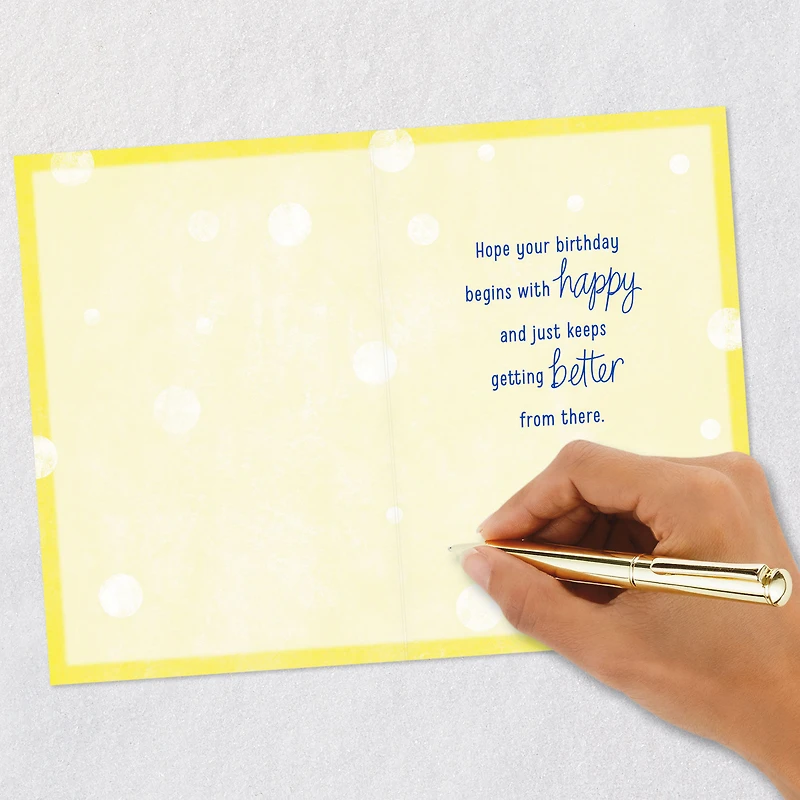 Hope your birthday
begins with happy
and just keeps
getting better
from there.